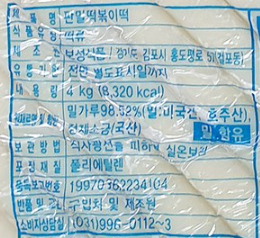 제품명 판밀떡볶이떡
식품유형 떡류
제조 보성식품 / 경기도 김포시 홍도평로 5(걸포동)
유통기한 전면 별도표시일까지
내용량 4 kg (8,320 kcal)
밀가루98.52%(밀:미국산, 호주산),
정제소금(국산) 밀 함유
보관방법 직사광선을 피하여 실온보관
포장재질 폴리에틸렌
품목보고번호 19970362234104
반품 및 교환 구입처 및 제조원
소비자상담실 (031)996-0112~3